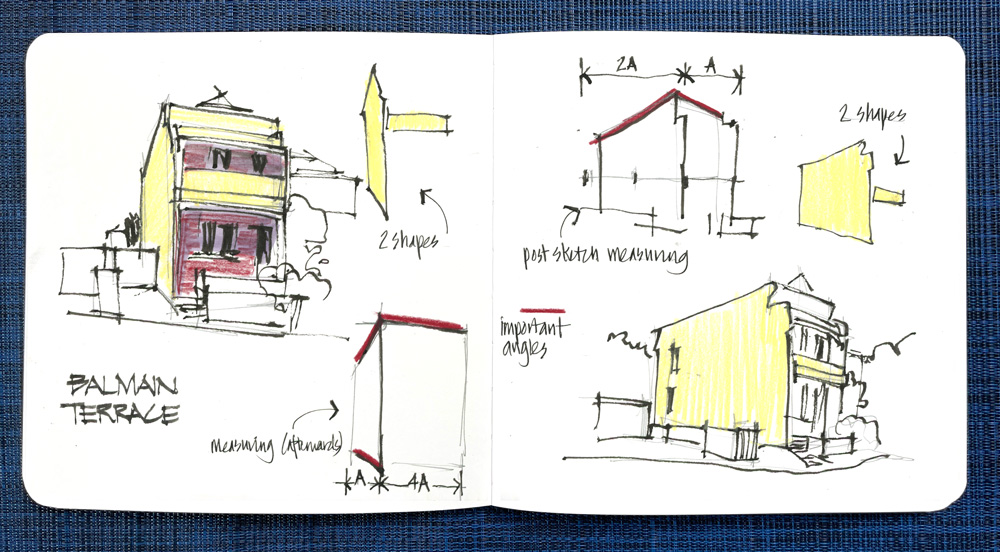 2 shapes
BALMAIN
TERRACE
measuring (afterwards)
A
4A
2A
A
2 shapes
post sketch measuring
important
angles